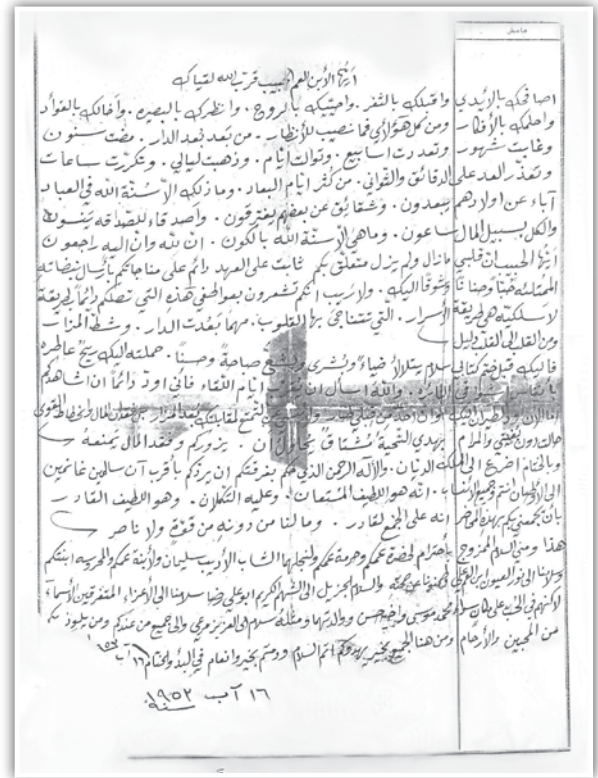 هامش
أيها الابن العم الحبيب قرب الله لقياك
اصافحك بالأيدي واقبلك بالثغر. واحييك بالروح. وانظرك بالبصيره. واخالك بالفوآد
واحلمك بالأفكار ومن كل هؤلآئي فما نصيب للأنظار. من بعد بعد الدار. مضت سنون
وغابت شهور وتعددت اسابيع. وتوالت ايام. وذهبت ليالي. وتكررت ساعات
وتعذر العد على الدقائق والثواني. من كثر ايام البعاد. وما ذلك الا سنة الله في العباد
آباء عن اولادهم يبعدون. وشقائق عن بعضهم يفترقون. وأصدقاء للصداقه ينسون
والكل بسبيل المال ساعون. وما هي الا سنة الله بالكون. ان لله وان اليه راجعون
أيها الحبيب ان قلبي مازال ولم يزل متعلق بكم ثابت على العهد دائم على مناجاتكم بإرسال نبضاته
الممتلئه حبا وحنانا وشوقا اليك. ولا ريب انكم تشعرون بعواطفي هذه التي تصلكم دائما بطريقة
لاسلكيته هي طريقة الأسرار. التي تتناجى بها القلوب. مهما بعدت الدار. وشط المزار
ومن القلب الى القلب دليل
فاليك قبل ختم كتابي سلام يتلألأ ضياء وبشرى ويشع صباحة وحسنا. حملته اليك ريح عاطره
والله اسأل ان يقرب ايام اللقاء فاني اود دائما ان اشاهدكم
حالت دون بغيتي والمرام يهدي التحية مشتاق يحاول ان. يزوركم وفقد المال يمنعه
وبالختام اضرع الى الملك الديان. والآله الرحمن الذي حكم بفرقتكم ان يردكم بأقرب آن سالمين غانمين
الى الأوطان انتم وجميع الأنساب. انه هو اللطيف المستعان. وعليه التكلان. وهو اللطيف القادر
بأن يجمعني بكم بهذه الحاضر انه على الجمع لقادر. وما لنا من دونه من قوة ولا ناصر
هذا ومني السلام الممزوج باحترام لحضرة عمكم وحرمة عمكم ولنجلها الشاب الأديب سليمان ولأبنة عمكم والمحروسه ابنتكم
وسلامنا الى نور العيون والسلام الجزيل الى الشهم الكريم ابو علي رضا سلامنا الى الأعزاء المتفرقين الأسماء
محمد موسى واحمد حسن ووالدتها ومثله سلام الى العزيز مرعي والى جميع من عندكم ومن يلوذ بكم
من المحبين والأرحام ومن هنا الجميع بخير يهدوكم اتم السلام ودمتم بخير وانعام في البدء والختام ١٦ آب ١٩٥٢
١٦ آب ١٩٥٢
سنه